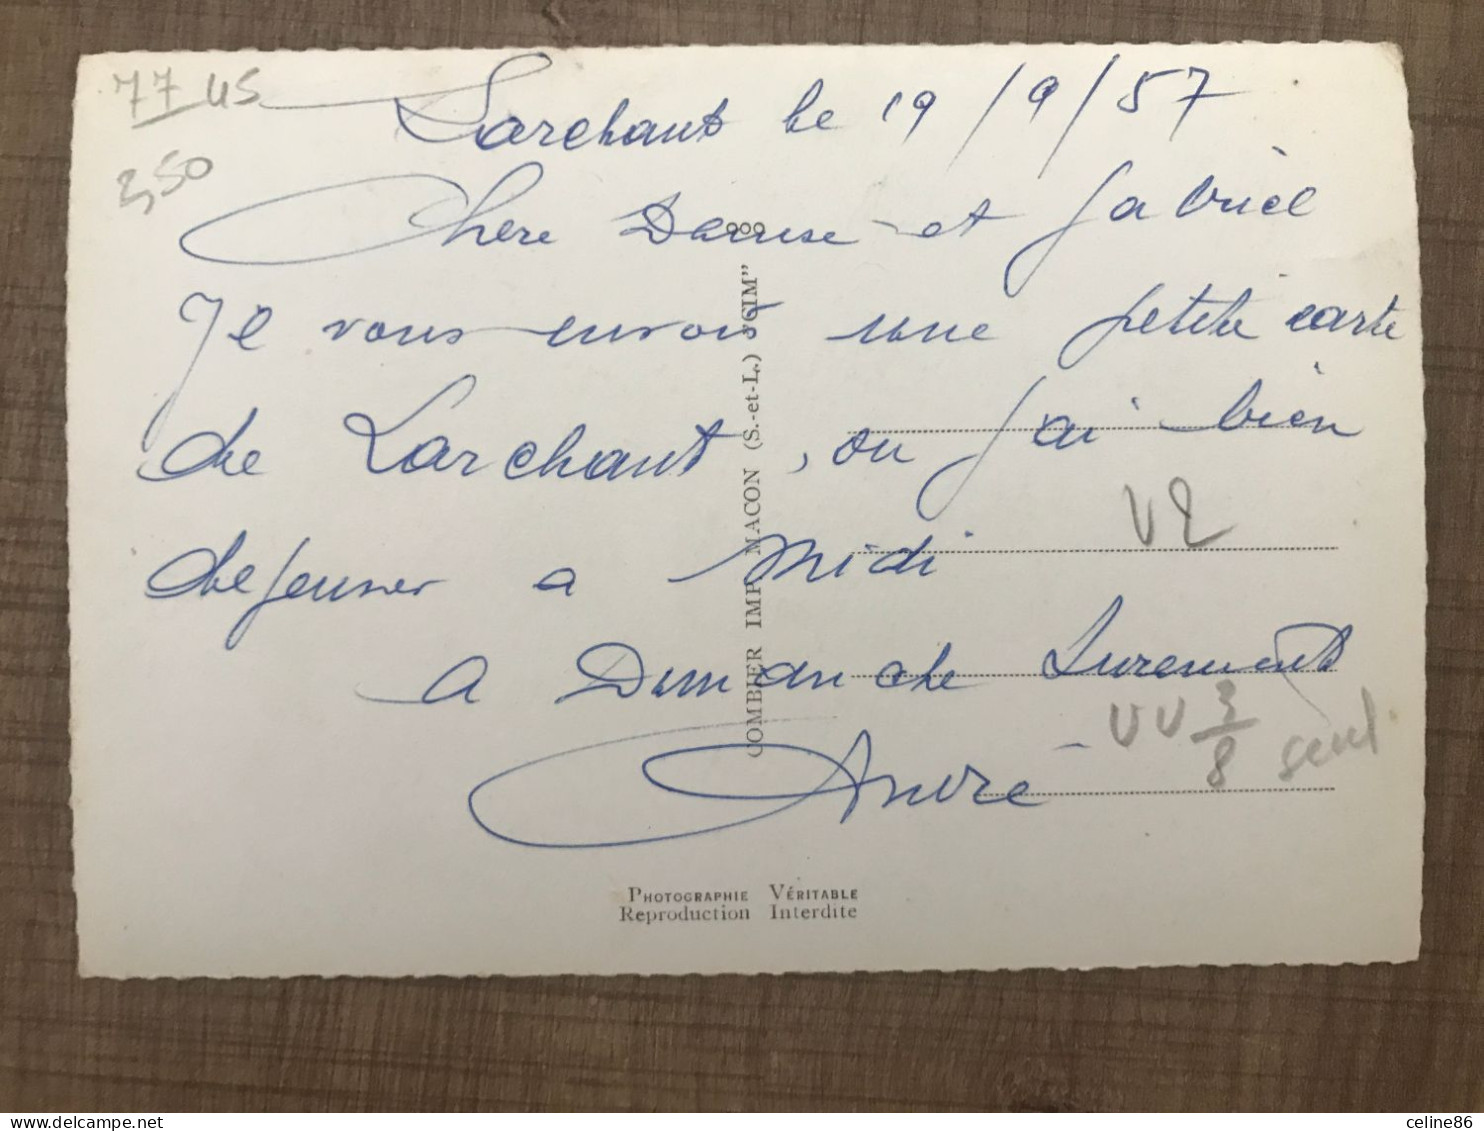 77 US
3,50
Larchant le 19/9/57
Chère Danise et Gabriel
Je vous envoie une petite carte
de Larchant, ou j'ai bien
dejeuner a midi
V2
a Dimanche Surement
VV 3/8 seul
André
COMBIER IMP. MACON (S.-et-L.) "CIM"
PHOTOGRAPHIE VÉRITABLE
Reproduction Interdite
celine86